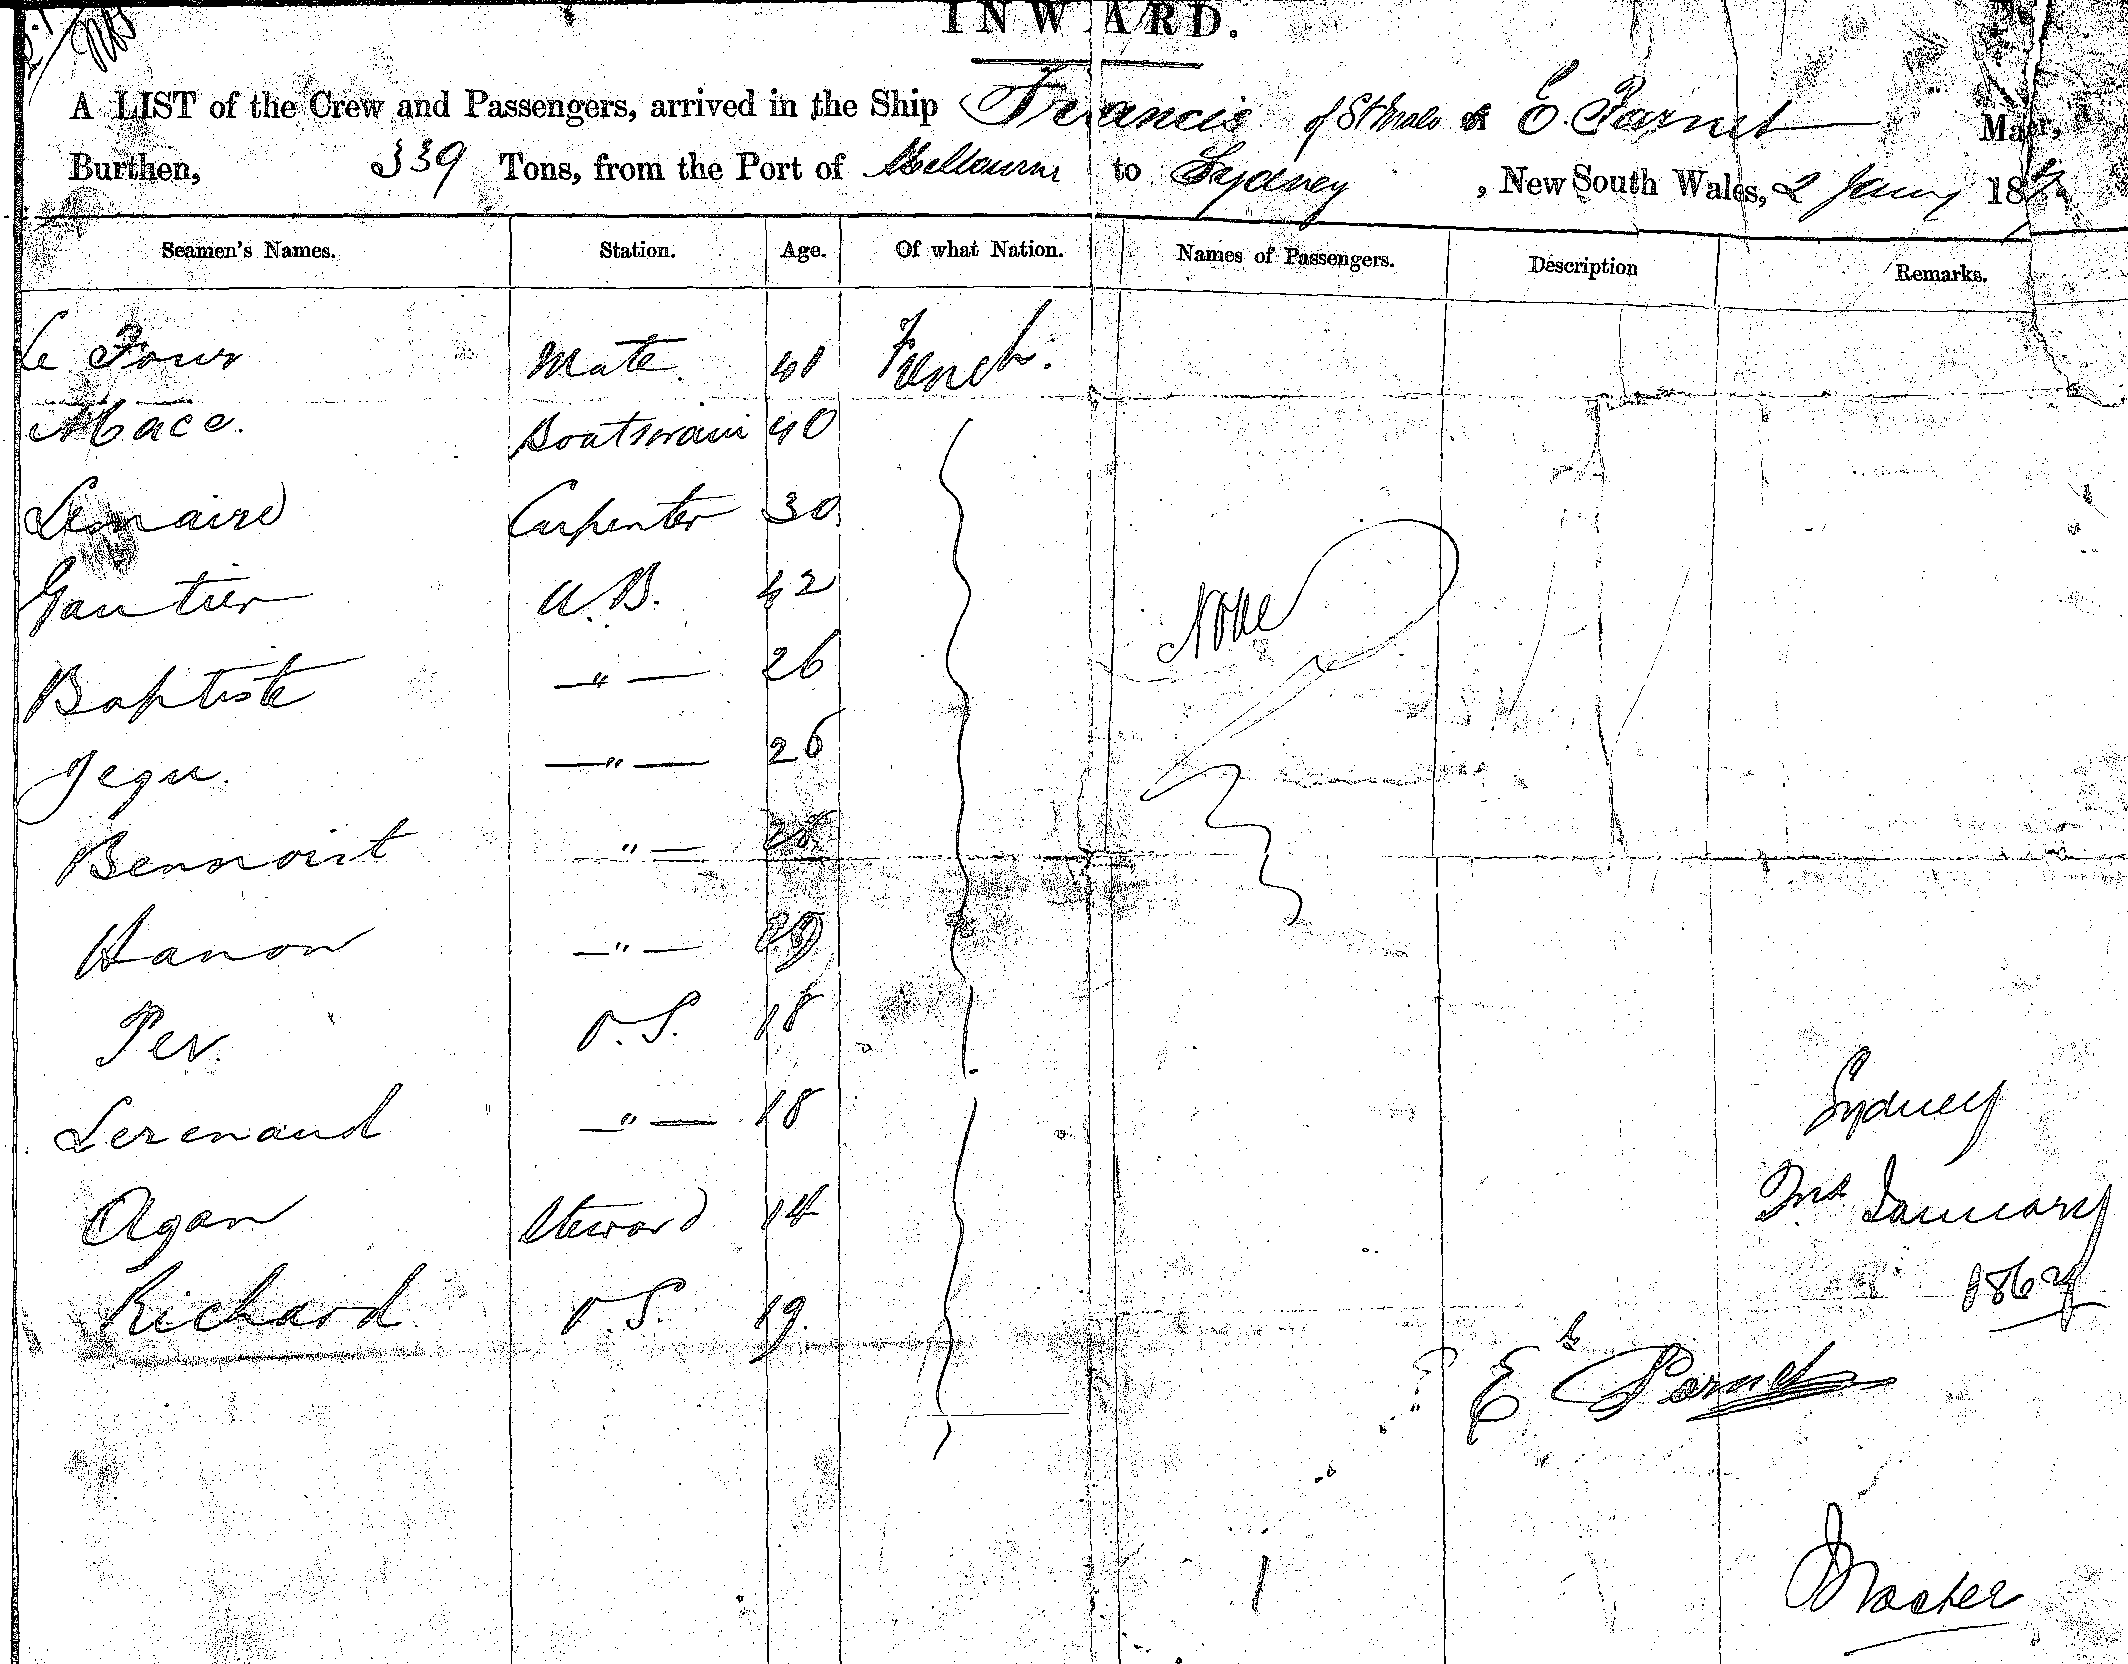 INWARD.
A LIST of the Crew and Passengers, arrived in the Ship Francis of St Malo E. Parnet Mastr,
Burthen, 339 Tons, from the Port of Melbourne to Sydney, New South Wales, 2 Jany 186
Seamen's Names. Station. Age. Of what Nation. Names of Passengers. Description Remarks.
Le Four Mate. 41 French.
Mace. Boatswain 40
Lemaire Carpenter 30
Gautier A.B. 42
Baptiste —"— 26
Jegu. —"— 26
None
Bennoist "—
Hanon —"— 29
Per. O.S. 18
Lerenaud —"— 18
Agan Steward 14
Richard O.S. 19.
Sydney
January
186
E Parnet
Master